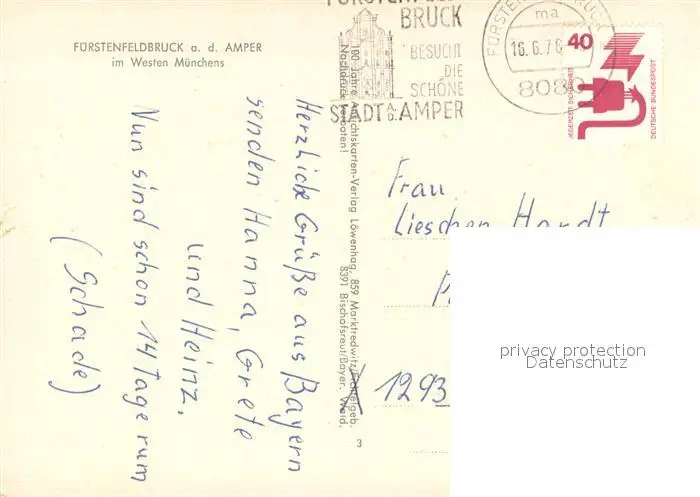 FÜRSTENFELDBRUCK a. d. AMPER
im Westen Münchens
BRUCK
BESUCHT
DIE
SCHÖNE
STADT a.d. AMPER
ma
16.6.76
8080
40
JEDERZEIT SICHERHEIT
DEUTSCHE BUNDESPOST
100 Jahre Ansichtskarten-Verlag Löwenhag, 859 Marktredwitz/Fichtelgeb.
Nachdruck verboten! 8391 Bischofsreut/Bayer. Wald.
Herzliche Grüße aus Bayern
senden Hanna, Grete
und Heinz.
Nun sind schon 14 Tage rum
(Schade)
Frau
Lieschen Hardt
1293
3
privacy protection
Datenschutz